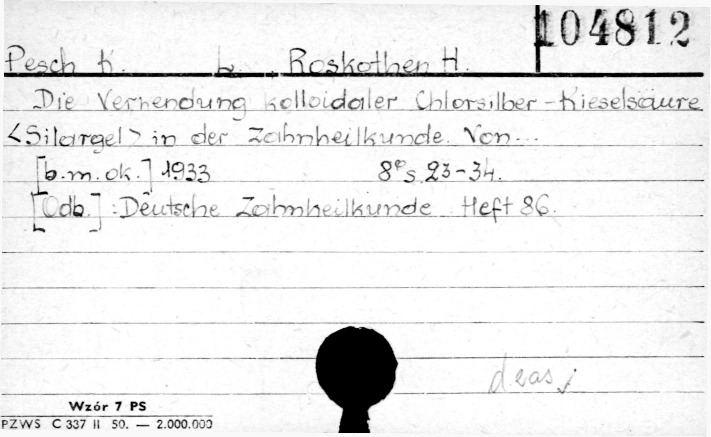 104812
Pesch K. L. Roskothen H.
Die Verwendung kolloidaler Chlorsilber-Kieselsäure
<Silargel> in der Zahnheilkunde. Von...
[b.m.ok.] 1933 8° s. 23-34.
[Odb.]: Deutsche Zahnheilkunde Heft 86.
Wzór 7 PS
PZWS C 337 II 50. — 2.000.000